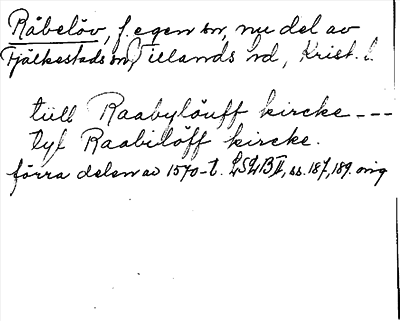 Råbelöv, f. egen sn, nu del av
Fjälkestads sn, Villands hd, Krist. l.
till Raabylöuff kircke ---
tyl Raabilöff kircke.
förra delen av 1570-t. LSLB II, ss. 187, 189. orig